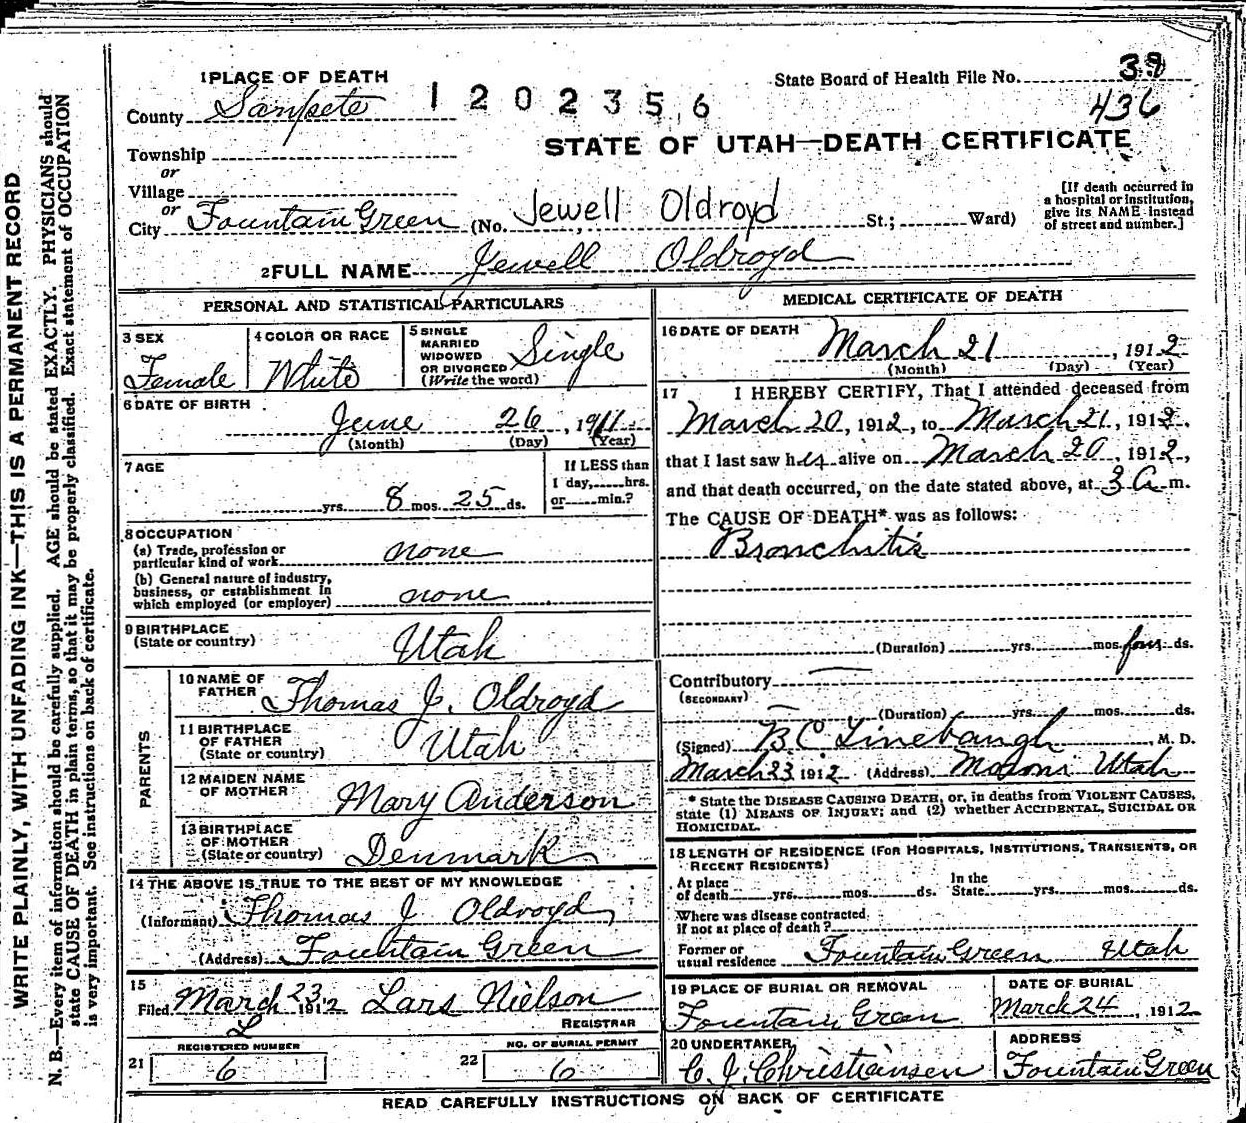 1 PLACE OF DEATH
State Board of Health File No. 39
County Sanpete
1202356
436
STATE OF UTAH—DEATH CERTIFICATE
Township
or
Village
or
City Fountain Green (No. Jewell Oldroyd St.; Ward)
[If death occurred in a hospital or institution, give its NAME instead of street and number.]
2 FULL NAME Jewell Oldroyd
PERSONAL AND STATISTICAL PARTICULARS
3 SEX
Female
4 COLOR OR RACE
White
5 SINGLE
MARRIED
WIDOWED
OR DIVORCED
(Write the word)
Single
6 DATE OF BIRTH
June 26, 1911
(Month) (Day) (Year)
7 AGE
yrs. 8 mos. 25 ds.
If LESS than
1 day, hrs.
or min.?
8 OCCUPATION
(a) Trade, profession or
particular kind of work none
(b) General nature of industry,
business, or establishment in
which employed (or employer) none
9 BIRTHPLACE
(State or country) Utah
PARENTS
10 NAME OF
FATHER Thomas J. Oldroyd
11 BIRTHPLACE
OF FATHER
(State or country) Utah
12 MAIDEN NAME
OF MOTHER Mary Anderson
13 BIRTHPLACE
OF MOTHER
(State or country) Denmark
14 THE ABOVE IS TRUE TO THE BEST OF MY KNOWLEDGE
(Informant) Thomas J Oldroyd
(Address) Fountain Green
15
Filed March 23 1912 Lars Nielson
REGISTRAR
L
REGISTERED NUMBER
21 6
NO. OF BURIAL PERMIT
22 6
MEDICAL CERTIFICATE OF DEATH
16 DATE OF DEATH
March 21, 1912
(Month) (Day) (Year)
17 I HEREBY CERTIFY, That I attended deceased from
March 20, 1912, to March 21, 1912,
that I last saw her alive on March 20, 1912,
and that death occurred, on the date stated above, at 3 a m.
The CAUSE OF DEATH* was as follows:
Bronchitis
(Duration) yrs. mos. four ds.
Contributory
(SECONDARY)
(Duration) yrs. mos. ds.
(Signed) B C Linebaugh, M. D.
March 23 1912 (Address) Moroni Utah
* State the DISEASE CAUSING DEATH, or, in deaths from VIOLENT CAUSES,
state (1) MEANS OF INJURY; and (2) whether ACCIDENTAL, SUICIDAL OR
HOMICIDAL.
18 LENGTH OF RESIDENCE (FOR HOSPITALS, INSTITUTIONS, TRANSIENTS, OR
RECENT RESIDENTS)
At place
of death yrs. mos. ds.
In the
State yrs. mos. ds.
Where was disease contracted,
if not at place of death?
Former or
usual residence Fountain Green Utah
19 PLACE OF BURIAL OR REMOVAL
Fountain Green
DATE OF BURIAL
March 24, 1912
20 UNDERTAKER
C. J. Christiansen
ADDRESS
Fountain Green
READ CAREFULLY INSTRUCTIONS ON BACK OF CERTIFICATE
WRITE PLAINLY, WITH UNFADING INK—THIS IS A PERMANENT RECORD
N. B.—Every item of information should be carefully supplied. AGE should be stated EXACTLY. PHYSICIANS should
state CAUSE OF DEATH in plain terms, so that it may be properly classified. Exact statement of OCCUPATION
is very important. See instructions on back of certificate.